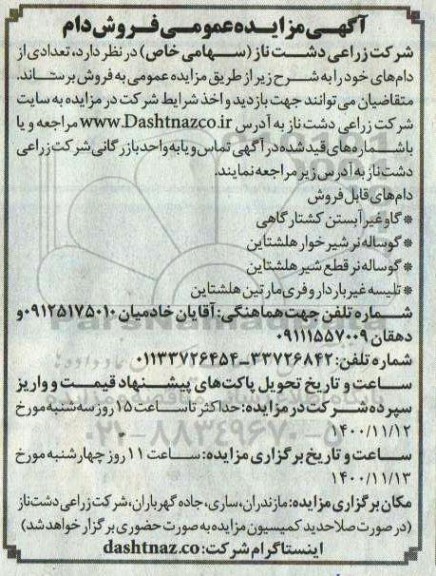 آگهی مزایده عمومی فروش دام
شرکت زراعی دشت ناز (سهامی خاص) در نظر دارد، تعدادی از
دام‌های خود را به شرح زیر از طریق مزایده عمومی به فروش برساند.
متقاضیان می توانند جهت بازدید و اخذ شرایط شرکت در مزایده به سایت
شرکت زراعی دشت ناز به آدرس www.Dashtnazco.ir مراجعه و یا
باشماره‌های قید شده در آگهی تماس و یا به واحد بازرگانی شرکت زراعی
دشت ناز به آدرس زیر مراجعه نمایند.
دام‌های قابل فروش
* گاو غیر آبستن کشتارگاهی
* گوساله نر شیر خوار هلشتاین
* گوساله نر قطع شیر هلشتاین
* تلیسه غیر باردار و فری مارتین هلشتاین
شماره تلفن جهت هماهنگی: آقایان خادمیان ۰۹۱۲۵۱۷۵۰۱۰ و
دهقان ۰۹۱۱۱۵۵۷۰۰۹
شماره تلفن: ۳۳۷۲۶۸۴۲-۰۱۱۳۳۷۲۶۴۵۴
ساعت و تاریخ تحویل پاکت‌های پیشنهاد قیمت و واریز
سپرده شرکت در مزایده: حداکثر تا ساعت ۱۵ روز سه شنبه مورخ
۱۴۰۰/۱۱/۱۲
ساعت و تاریخ برگزاری مزایده: ساعت ۱۱ روز چهارشنبه مورخ
۱۴۰۰/۱۱/۱۳
مکان برگزاری مزایده: مازندران، ساری، جاده گهرباران، شرکت زراعی دشت ناز
(در صورت صلاحدید کمیسیون مزایده به صورت حضوری برگزار خواهد شد)
اینستاگرام شرکت: dashtnaz.co
۰۲۱-۸۸۳۴۹۶۷۰-۵